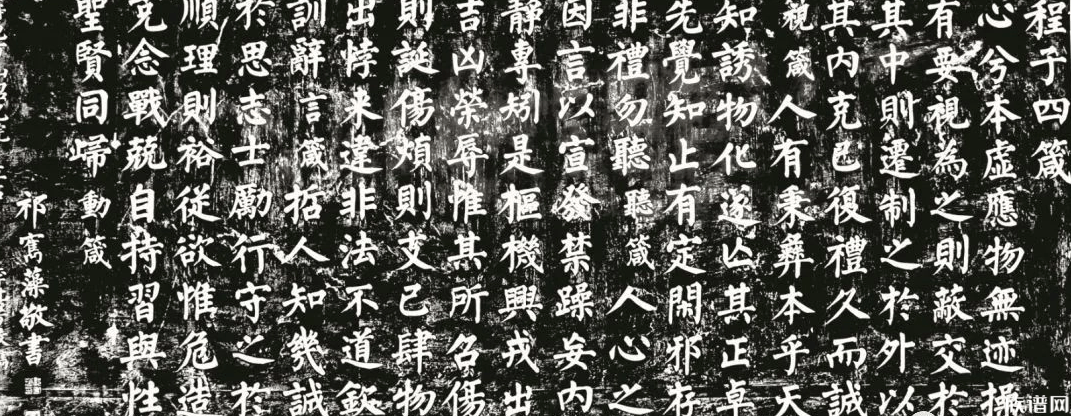 程子四箴
心兮本虛應物無迹操
有要視為之則蔽交於
其中則遷制之於外以
其內克己復禮久而誠
視箴人有秉彝本乎天
知誘物化遂亾其正卓
先覺知止有定閑邪存
非禮勿聽聽箴人心之
因言以宣發禁躁妄內
靜專矧是樞機興戎出
吉凶榮辱惟其所召傷
則誕傷煩則支己肆物
出悖来違非法不道欽
訓辭言箴哲人知幾誠
於思志士勵行守之於
順理則裕從欲惟危造
克念戰兢自持習與性
聖賢同歸動箴
祁寯藻敬書
族谱网